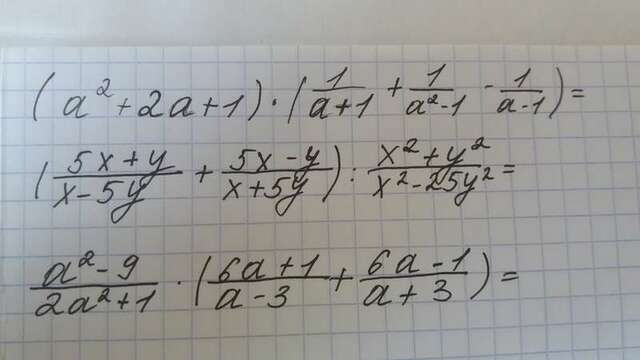 (a² + 2a + 1) · (1/(a+1) + 1/(a²-1) - 1/(a-1)) =
((5x+y)/(x-5y) + (5x-y)/(x+5y)) : (x²+y²)/(x²-25y²) =
(a²-9)/(2a²+1) · ((6a+1)/(a-3) + (6a-1)/(a+3)) =